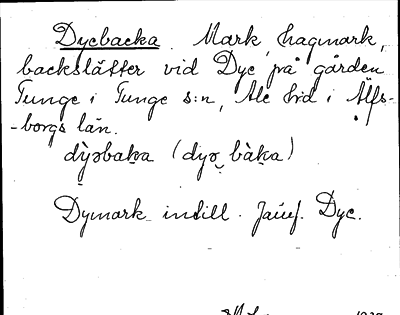 Dyebacka. Mark, hagmark,
backslåtter vid Dye på gården
Tunge i Tunge s:n, Ale hd i Älfs-
-borgs län.
dỳəbaka (dyə bàka)
Dymark intill. Jämf. Dye.